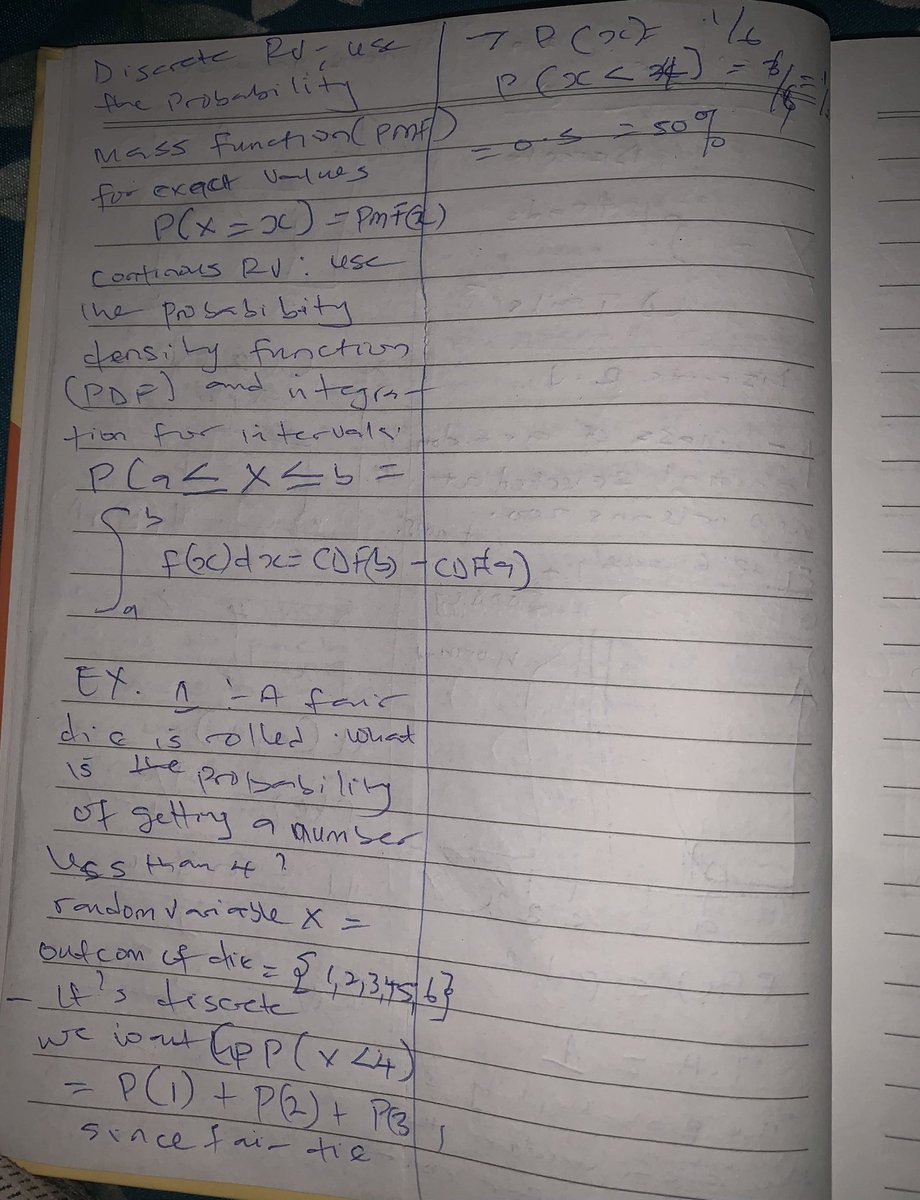 Discrete RV: use
the Probability
Mass function (pmf)
for exact values
P(X = x) = Pmf(x)
Continous RV: use
the probability
density function
(PDF) and integra-
tion for intervals.
P(a ≤ X ≤ b =
∫ b
f(x)dx = CDF(b) - CDF(a)
a
EX. 1 :- A fair
die is rolled. what
is the probability
of getting a number
less than 4?
random variable X =
outcom of die = {1,2,3,4,5,6}
- it's discrete
we want P(X<4)
= P(1) + P(2) + P(3
since fair die
→ P(x) = 1/6
P(x < 4) = 3/6 =
= 0.5 = 50%